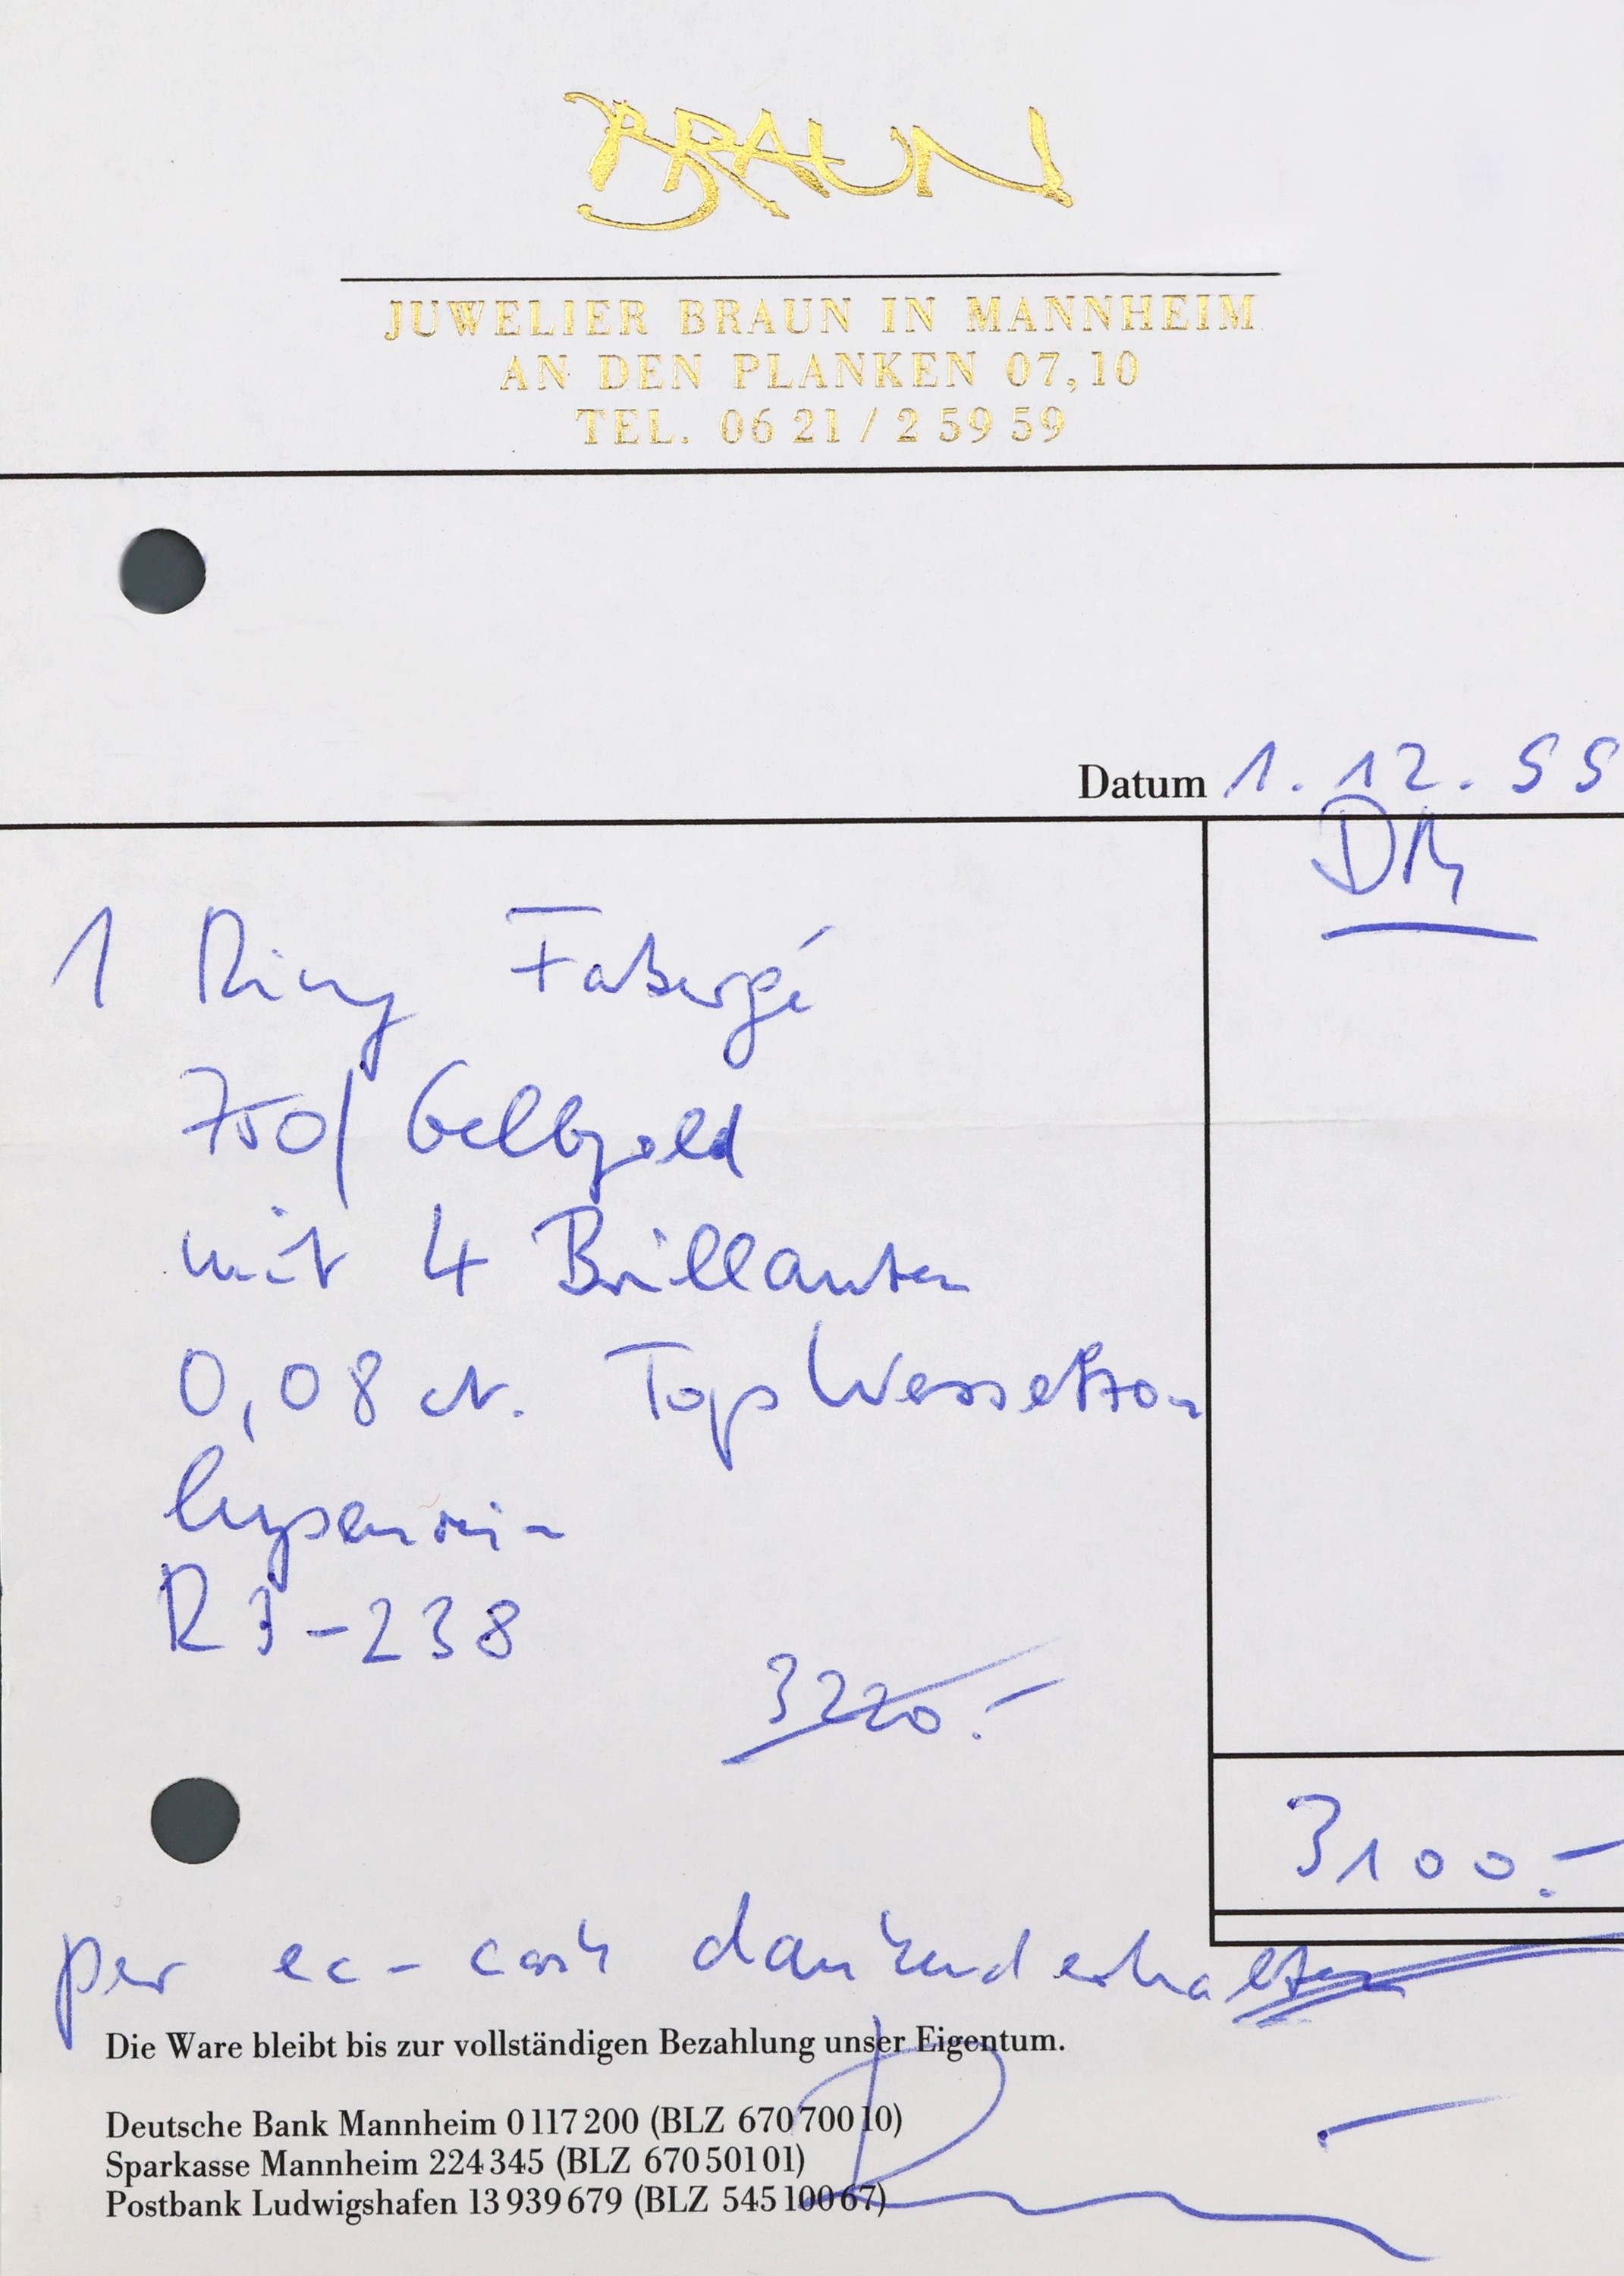 BRAUN
JUWELIER BRAUN IN MANNHEIM
AN DEN PLANKEN 07,10
TEL. 06 21 / 2 59 59
Datum 1. 12. 99
DM
1 Ring Fabergé
750/ Gelbgold
mit 4 Brillanten
0,08 ct. Top Wesselton
lupenrein
3220.-
3100.-
per ec-cash dankend erhalten
Die Ware bleibt bis zur vollständigen Bezahlung unser Eigentum.
Deutsche Bank Mannheim 0 117 200 (BLZ 670 700 10)
Sparkasse Mannheim 224 345 (BLZ 670 501 01)
Postbank Ludwigshafen 13 939 679 (BLZ 545 100 67)